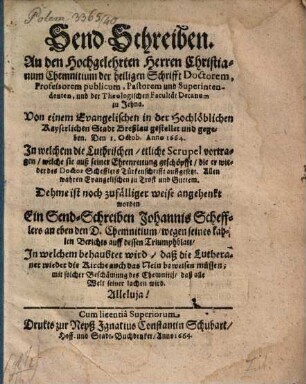 Polem. 3365/40
Send-Schreiben.
An den Hochgelehrten Herren Christia-
num Chemnitium der heiligen Schrifft Doctorem,
Professorem publicum, Pastorem und Superinten-
denten, und der Theologischen Facultät Decanum
zu Jehna.
Von einem Evangelischen in der Hochlöblichen
Kayserlichen Stadt Breßlau gestellet und gege-
ben. Den 1. Octob. Anno 1664.
In welchem die Luthrischen / etliche Scrupel vortra-
gen / welche sie auß seiner Ehrenrettung geschöpfft / die er wie-
der des Doctor Schefflers Türckenschrifft außgesetzt. Allen
wahren Evangelischen zu Trost und Guttem.
Dehme ist noch zufälliger weise angehenkt
worden
Ein Send-Schreiben Johannis Scheff-
lers an eben den D. Chemnitium / wegen seines kah-
len Berichts auff dessen Triumphblatt /
In welchem behaubtet wird / daß die Luthera-
ner wieder die Kirche auch das Nein beweisen müssen;
mit solcher Beschämung des Chemnitii / daß alle
Welt seiner lachen wird.
Alleluja!
Cum licentiâ Superiorum.
Drukts zur Neyß Ignatius Constantin Schubart /
Hoff- und Stadt-Buchdruker / Anno 1664.